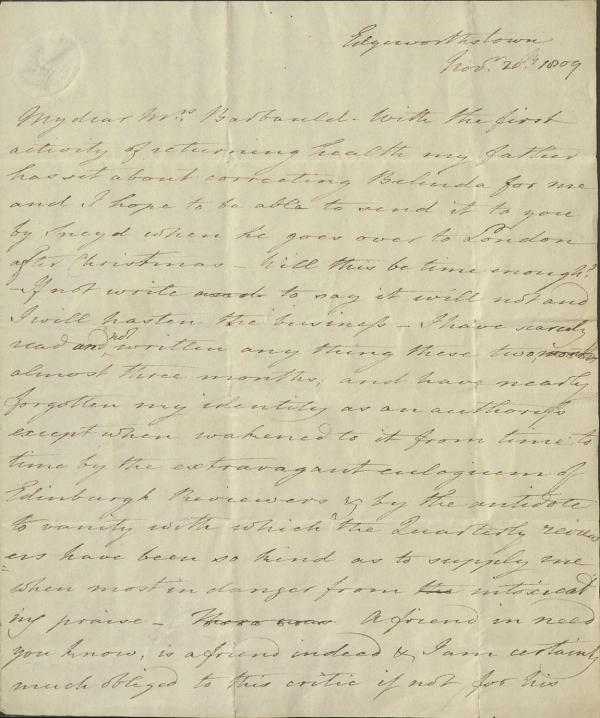 Edgeworthstown
Novr. 20th. 1809
My dear Mrs. Barbauld - With the first
activity of returning health my father
has set about correcting Belinda for me
and I hope to be able to send it to you
by Sneyd when he goes over to London
after Christmas - Will this be time enough?
- If not write to say it will not and
I will hasten the business - I have scarcely
read and not written any thing these two months
almost three months, and have nearly
forgotten my identity as an authoress
except when wakened to it from time to
time by the extravagant eulogium of
Edinburgh Reviewers & by the antidote
to vanity with which the Quarterly review
ers have been so kind as to supply me
when most in danger from the intoxicat
ing praise - There was A friend in need
you know, is a friend indeed & I am certainly
much obliged to this critic if not for his